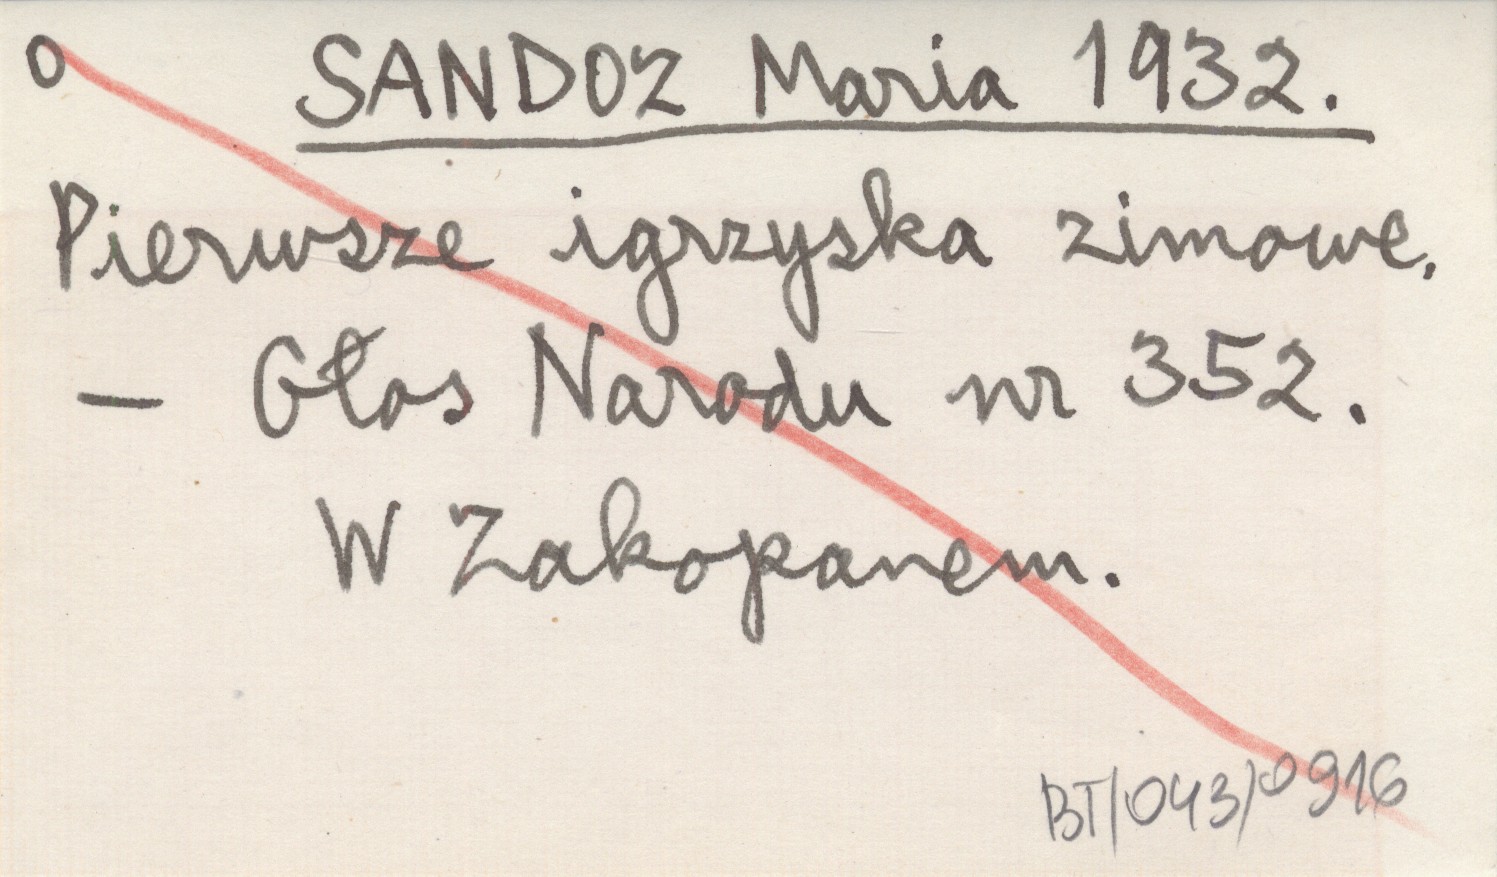 o SANDOZ Maria 1932.
Pierwsze igrzyska zimowe.
— Głos Narodu nr 352.
W Zakopanem.
BT/043/0916